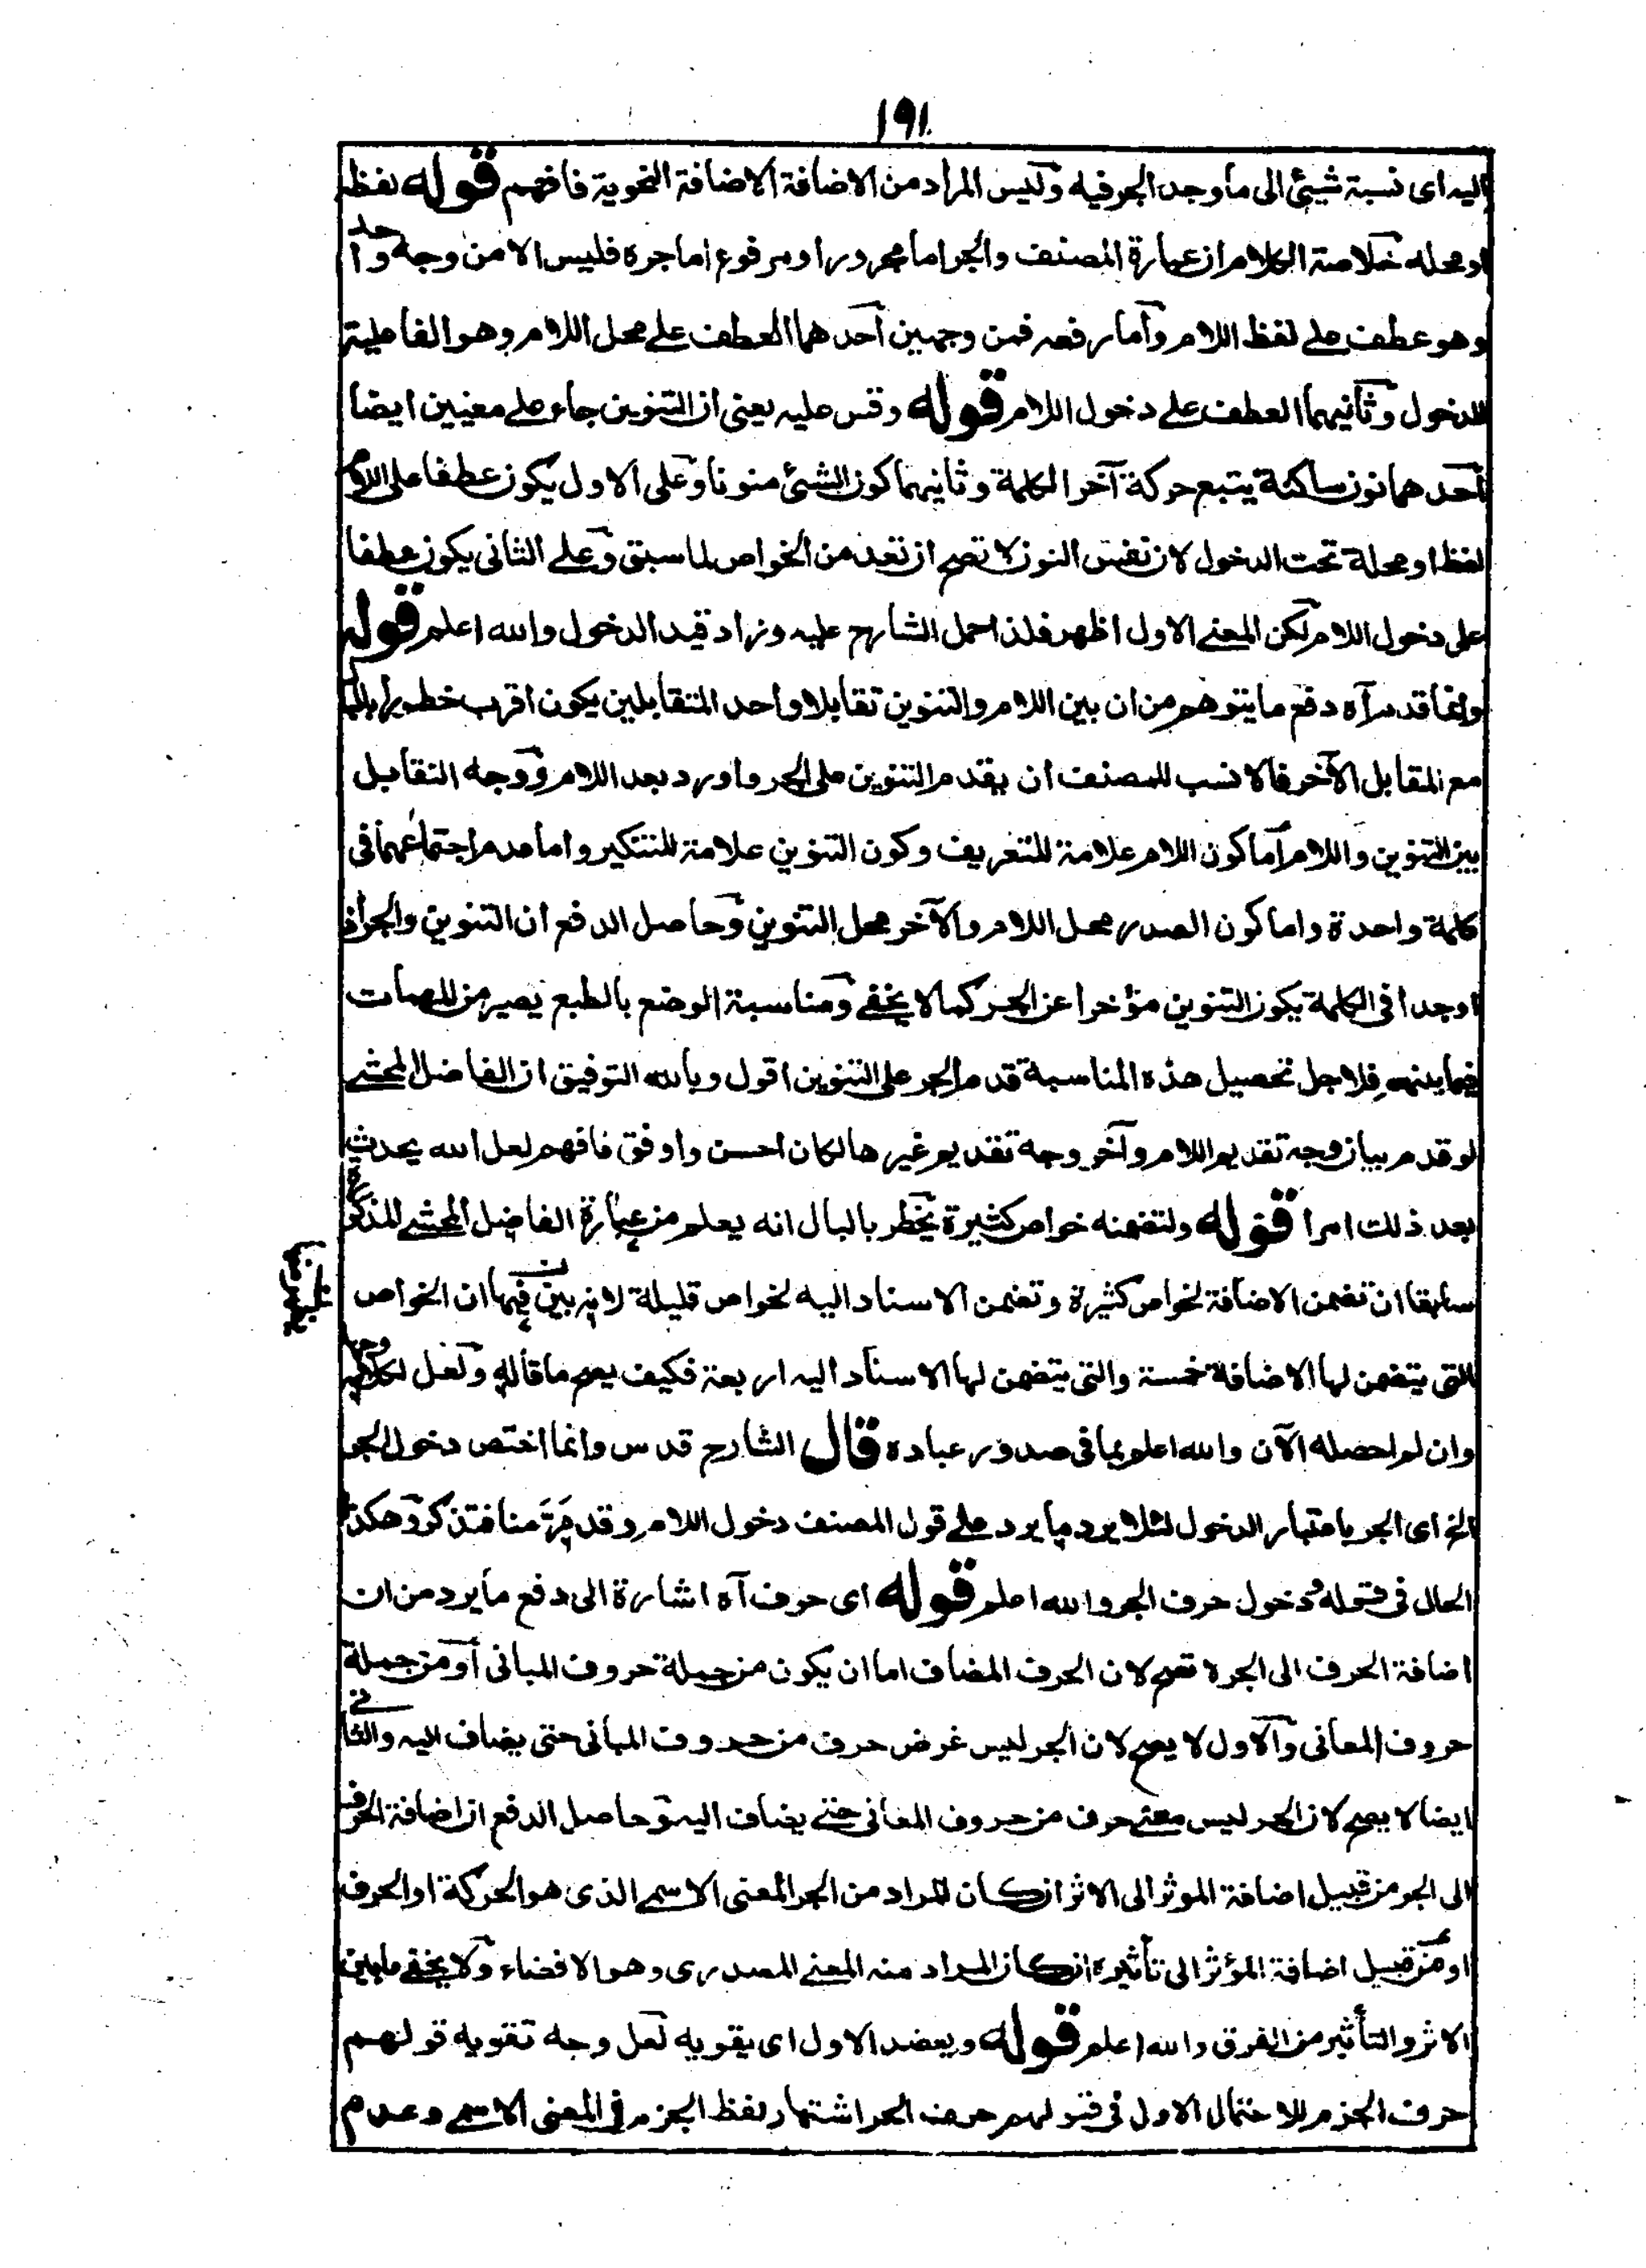 ١٩١
اليه اى نسبة شيئ الى ما وجد الجر فيه وليس المراد من الاضافة الاضافة النحوية فافهم قوله لفظه
او محله خلاصة الكلام ان عبارة المصنف والجر اما مجرور او مرفوع اما جره فليس الا من وجه واحد
وهو عطف على لفظ اللام وآما رفعه فمن وجهين آحدهما العطف على محل اللام وهو الفاعلية
للدخول وثانيهما العطف على دخول اللام قوله وقس عليه يعنى ان التنوين جاء على معنيين ايضا
آحدهما نون ساكنة يتبع حركة آخر الكلمة وثانيهما كون الشئ منونا وعلى الاول يكون عطفا على اللام
لفظا او محلا تحت الدخول لان نفس النون لا تصح ان تعد من الخواص لما سبق وعلى الثانى يكون عطفا
على دخول اللام لكن المعنى الاول اظهر فلذا حمل الشارح عليه وزاد قيد الدخول والله اعلم قوله
وانما قدم آه دفع ما يتوهم من ان بين اللام والتنوين تقابلا واحد المتقابلين يكون اقرب خطورا بالبال
مع المقابل الآخر فالانسب للمصنف ان يقدم التنوين على الجر واورد بعد اللام ووجه التقابل
بين التنوين واللام آما كون اللام علامة للتعريف وكون التنوين علامة للتنكير واما عدم اجتماعهما فى
كلمة واحدة واما كون الصدر محل اللام والآخر محل التنوين وحاصل الدفع ان التنوين والجر اذ
اوجدا فى الكلمة يكون التنوين مؤخرا عن الجر كما لا يخفى ومناسبة الوضع بالطبع يصير من المهمات
فيما بينهم فلاجل تحصيل هذه المناسبة قدم الجر على التنوين اقول وبالله التوفيق ان الفاضل المحشى
لو قدم بيان وجه تقديم اللام وآخر وجه تقديم غيرها لكان احسن واوفق فافهم لعل الله يحدث
بعد ذلك امرا قوله ولتضمنه خواص كثيرة يخطر بالبال انه يعلم من عبارة الفاضل المحشى المذكورة
سابقا ان تضمن الاضافة لخواص كثيرة وتضمن الاسناد اليه لخواص قليلة لانه بين فيها ان الخواص
التى يتضمن لها الاضافة خمسة والتى يتضمن لها الاسناد اليه اربعة فكيف يصح ما قاله ولعل لكلامه وجها
وان لم احصله الآن والله اعلم بما فى صدور عباده قال الشارح قدس وانما اختص دخول الجر
الخ اى الجر باعتبار الدخول لئلا يرد ما يرد على قول المصنف دخول اللام وقد مر منا فتذكر وهكذا
الحال فى قوله دخول حرف الجر والله اعلم قوله اى حرف آه اشارة الى دفع ما يرد من ان
اضافة الحرف الى الجر لا تصح لان الحرف المضاف اما ان يكون من جملة حروف المبانى آو من جملة
حروف المعانى والاول لا يصح لان الجر ليس غرض حرف من حروف المبانى حتى يضاف اليه والثانى
ايضا لا يصح لان الجر ليس معنى حرف من حروف المعانى حتى يضاف اليه وحاصل الدفع ان اضافة الحرف
الى الجر من قبيل اضافة الموثر الى الاثر ان كان المراد من الجر المعنى الاسمى الذى هو الحركة او الحرف
او من قبيل اضافة المؤثر الى تأثيره ان كان المراد منه المعنى المصدرى وهو الافضاء ولا يخفى ما بين
الاثر والتأثير من الفرق والله اعلم قوله ويعضد الاول اى يقويه لعل وجه تقويه قولهم
حرف الجزم للاحتمال الاول فى قولهم حرف الجر اشتهار لفظ الجزم فى المعنى الاسمى وعدم